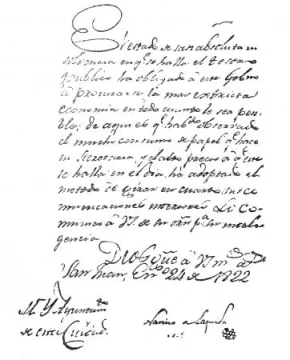 El estado de tan absoluta in
diferencia en qe. se halla el Tesoro
publico ha obligado á este Gobno.
á procurar la mas extricta
economia en todo cuanto le sea posi
ble; de aqui es qe. habdo. observado
el mucho consumo de papel qe. hace
su Secretaria, y el alto precio á que
se halla en el dia, ha adoptado el
metodo de girar en cuartos sus co
municaciones interiores. Lo Co
munico á VS. de su orn. pa. su inteli
gencia.
Dios gue. á VS. ms. as.
San Juan, Eno. 24 de 1822
M. Y. Ayuntamto.
de esta Ciudad.